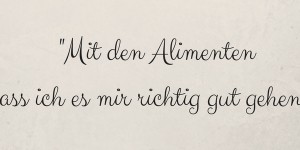 "Mit den Alimenten
ass ich es mir richtig gut gehen